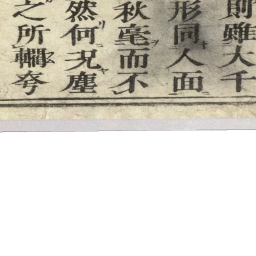 則雖大千
形同人面
秋毫而不
然何况塵
之所轥夸